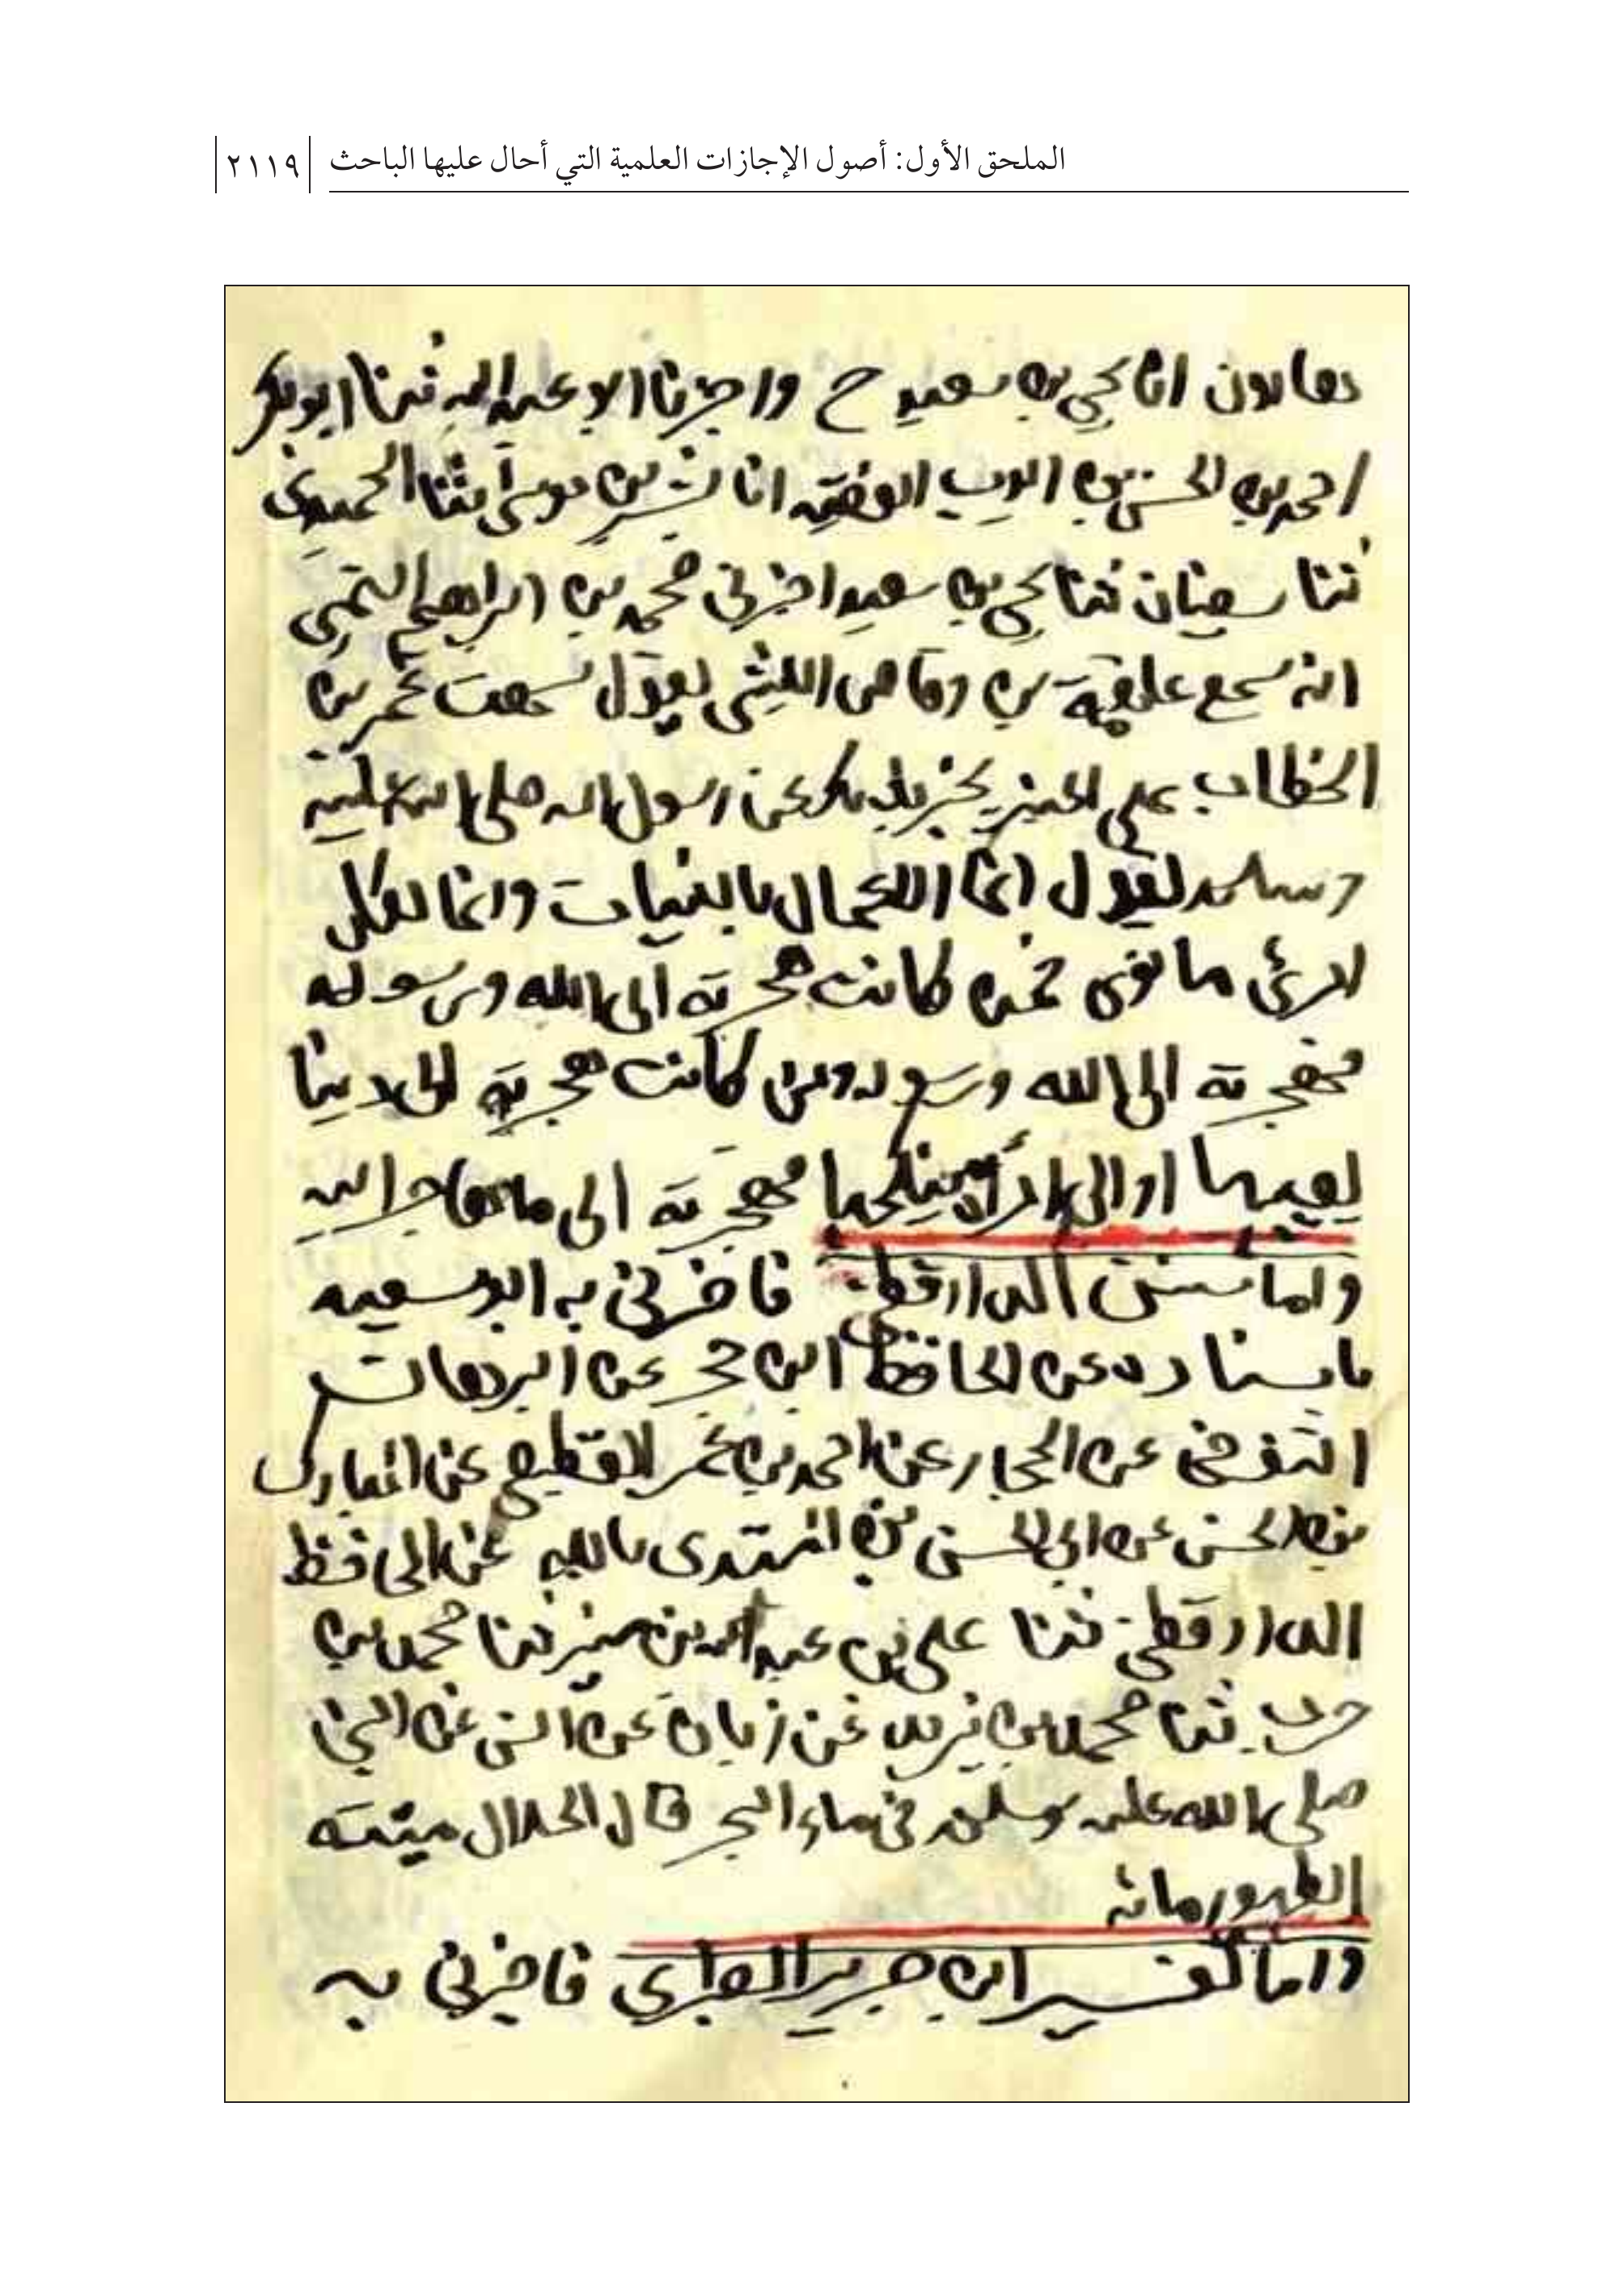 الملحق الأول: أصول الإجازات العلمية التي أحال عليها الباحث ٢١١٩
هارون انا يحيى بن سعيد ح واخبرنا ابو عبد الله ثنا ابو بكر
احمد بن الحسن بن ايوب الفقيه انا بشر بن موسى ثنا الحميدي
ثنا سفيان ثنا يحيى بن سعيد اخبرني محمد بن ابراهيم التيمي
انه سمع علقمة بن وقاص الليثي يقول سمعت عمر بن
الخطاب على المنبر يخبر بذلك عن رسول الله صلى الله عليه
وسلم يقول انما الاعمال بالنيات وانما لكل
امرئ ما نوى فمن كانت هجرته الى الله ورسوله
فهجرته الى الله ورسوله ومن كانت هجرته الى دنيا
يصيبها او الى امرأة ينكحها فهجرته الى ما هاجر اليه
واما سنن الدارقطني فاخبرني به ابو سعيد
باسناده عن الحافظ ابن حجر عن البرهان
التنوخي عن الحجار عن احمد بن عمر القطيعي عن المبارك
بن الحسن عن ابي الحسن بن المهتدي بالله عن الحافظ
الدارقطني ثنا علي بن عبد الله بن مبشر ثنا محمد بن
حرب ثنا محمد بن يزيد عن ابان عن انس عن النبي
صلى الله عليه وسلم في ماء البحر قال الحلال ميتته
الطهور مائه
واما تفسير ابن جرير الطبري فاخبرني به